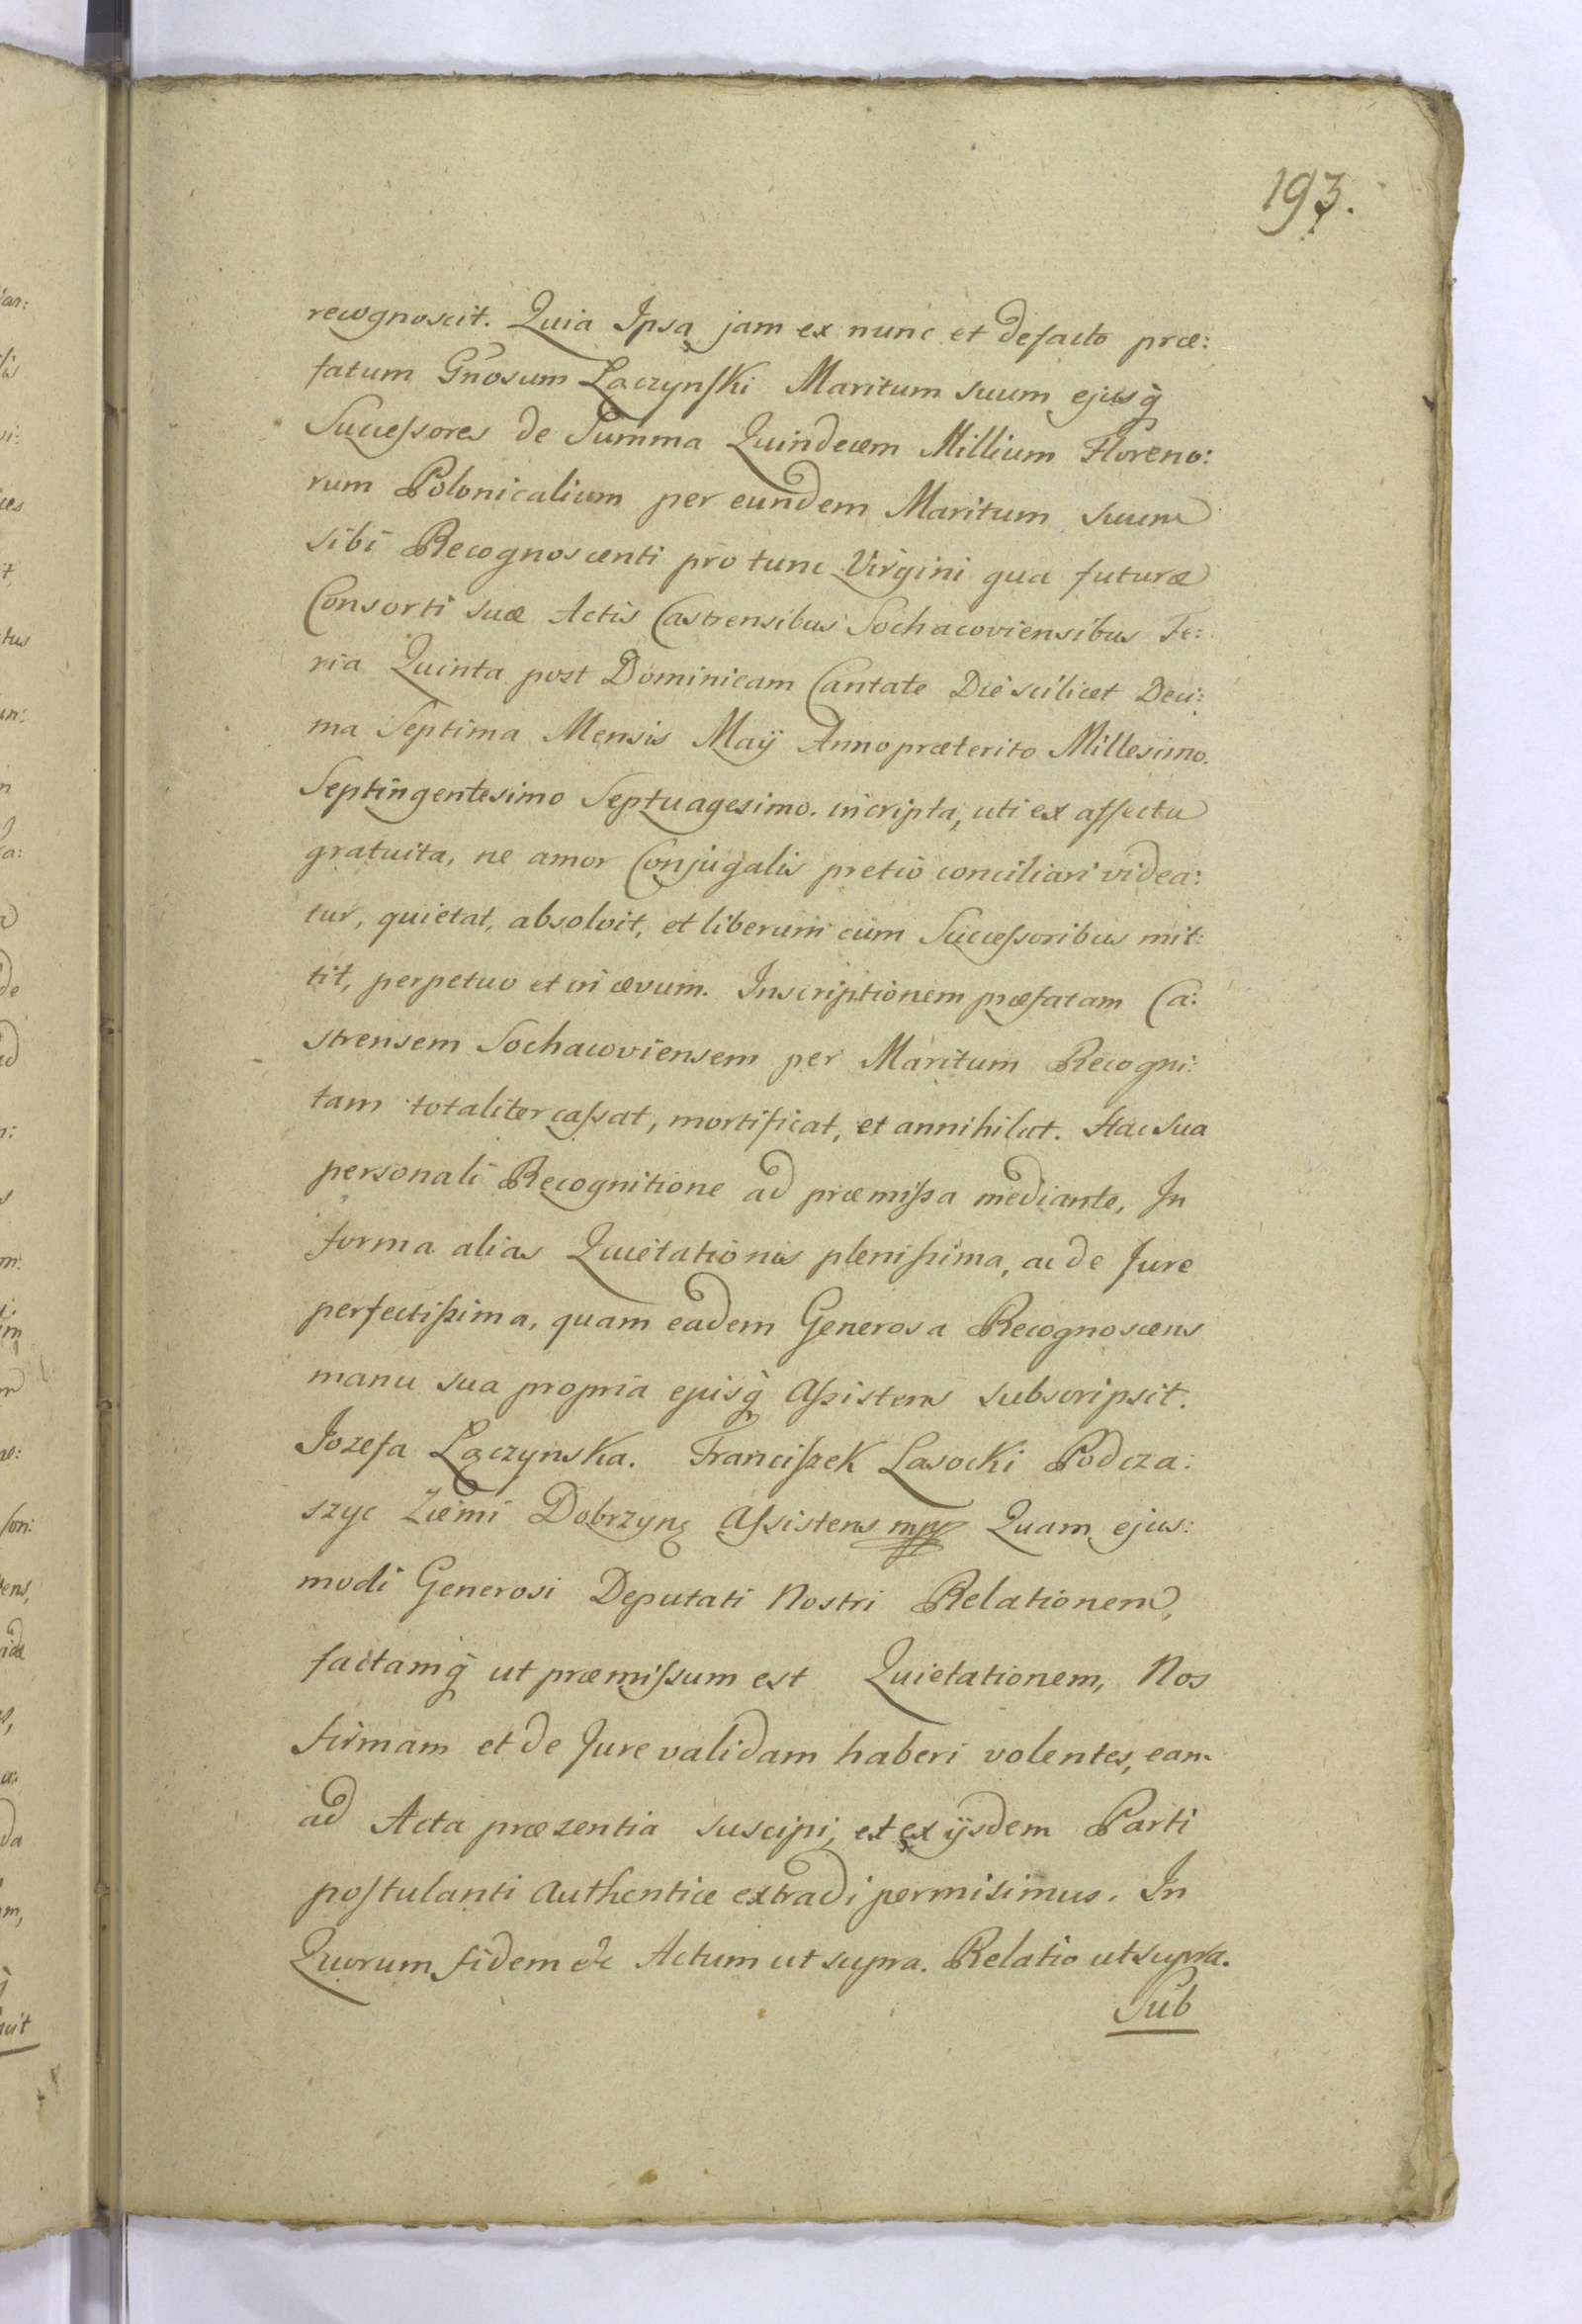 193.
recognoscit. Quia Ipsa jam ex nunc et defacto præ:
fatum Gñosum Łączynſki Maritum suum ejusq̀
Succeſsores de Summa Quindecem Millium Floreno:
rum Polonicalium per eundem Maritum suum
sibi Recognoscenti pro tunc Virgini qua futuræ
Consorti suæ Actis Castrensibus Sochacoviensibus Fe:
ria Quinta post Dominicam Cantate Die scilicet Deci:
ma Septima Mensis Maÿ Anno præterito Millesimo.
Septingentesimo Septuagesimo. incripta, uti ex affectu
gratuita, ne amor Conjugalis pretio conciliari videa:
tur, quietat, absolvit, et liberum cum Succeſsoribus mit:
tit, perpetuo et in ævum. Inscriptionem præfatam Ca:
strensem Sochacoviensem per Maritum Recogni:
tam totaliter caſsat, mortificat, et annihilat. Hac sua
personali Recognitione ad præmiſsa mediante, In
forma alias Quietationis pleniſsima, ac de Jure
perfectiſsima, quam eadem Generosa Recognoscens
manu sua propria ejusq̀ Aſsistens subscripsit.
Jozefa Łączynska. Franciſzek Lasocki Podcza:
szyc Ziemi Dobrzyn: Aſsistens mpp Quam ejus:
modi Generosi Deputati Nostri Relationem,
factamq̀ ut præmiſsum est Quietationem, Nos
firmam et de Jure validam haberi volentes, eam
ad Acta præsentia suscipi, et ex ijsdem Parti
poſtulanti Authentice extradi permisimus. In
Quorum fidem &c Actum ut supra. Relatio ut supra.
Sub